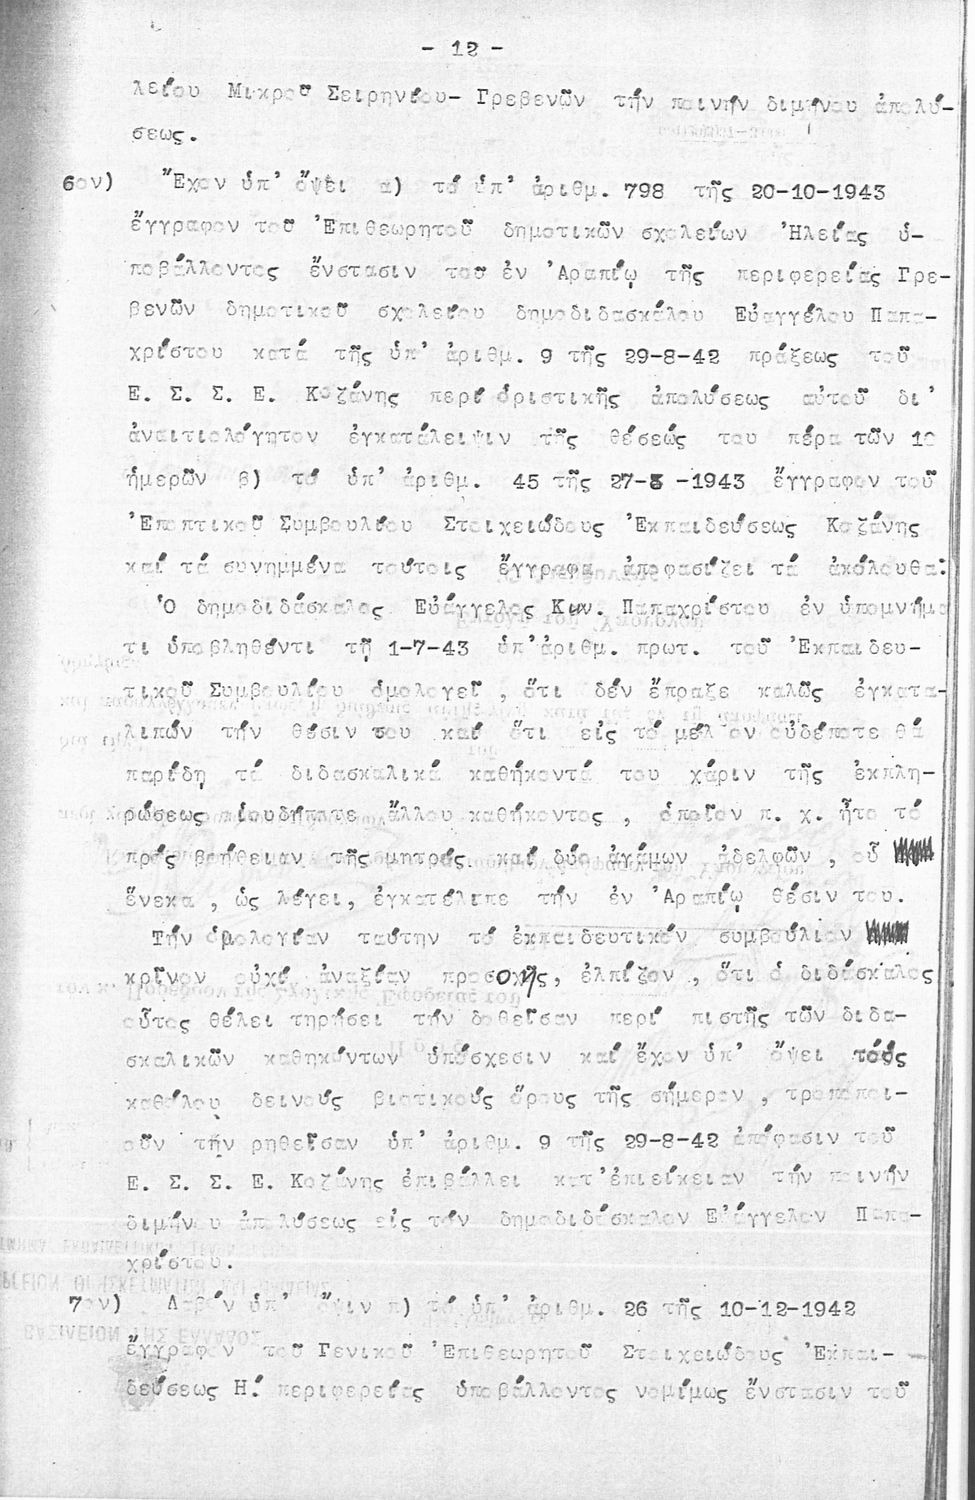 - 12 -
λείου Μικροῦ Σειρηνίου- Γρεβενῶν τήν ποινήν διμήνου ἀπολύ-
σεως.
6ον) Ἔχον ὑπ' ὄψει α) τό ὑπ' ἀριθμ. 798 τῆς 20-10-1943
ἔγγραφον τοῦ Ἐπιθεωρητοῦ δημοτικῶν σχολείων Ἠλείας ὑ-
ποβάλλοντος ἔνστασιν τοῦ ἐν Ἀραπίῳ τῆς περιφερείας Γρε-
βενῶν δημοτικοῦ σχολείου δημοδιδασκάλου Εὐαγγέλου Παπα-
χρίστου κατά τῆς ὑπ' ἀριθμ. 9 τῆς 29-8-42 πράξεως τοῦ
Ε. Σ. Σ. Ε. Κοζάνης περί ὁριστικῆς ἀπολύσεως αὐτοῦ δι'
ἀναιτιολόγητον ἐγκατάλειψιν τῆς θέσεώς του πέρα τῶν 10
ἡμερῶν β) τό ὑπ' ἀριθμ. 45 τῆς 27-8 -1943 ἔγγραφον τοῦ
Ἐποπτικοῦ Συμβουλίου Στοιχειώδους Ἐκπαιδεύσεως Κοζάνης
καί τά συνημμένα τούτοις ἔγγραφα ἀποφασίζει τά ἀκόλουθα:
Ὁ δημοδιδάσκαλος Εὐάγγελος Κων. Παπαχρίστου ἐν ὑπομνήμα
τι ὑποβληθέντι τῇ 1-7-43 ὑπ'ἀριθμ. πρωτ. τοῦ Ἐκπαιδευ-
τικοῦ Συμβουλίου ὁμολογεῖ , ὅτι δέν ἔπραξε καλῶς ἐγκατα-
λιπών τήν θέσιν του καί ὅτι εἰς τό μέλλον οὐδέποτε θά
παρίδῃ τά διδασκαλικά καθήκοντά του χάριν τῆς ἐκπλη-
ρώσεως οἱουδήποτε ἄλλου καθήκοντος , ὁποῖον π. χ. ἦτο τό
πρός βοήθειαν τῆς μητρός καί δύο ἀγάμων ἀδελφῶν , οὗ
ἕνεκα , ὡς λέγει, ἐγκατέλιπε τήν ἐν Ἀραπίῳ θέσιν του.
Τήν ὁμολογίαν ταύτην τό ἐκπαιδευτικόν συμβούλιον
κρῖνον οὐχί ἀναξίαν προσοχῆς, ἐλπίζον , ὅτι ὁ διδάσκαλος
οὗτος θέλει τηρήσει τήν δοθεῖσαν περί πιστῆς τῶν διδα-
σκαλικῶν καθηκόντων ὑπόσχεσιν καί ἔχον ὑπ' ὄψει τούς
καθόλου δεινούς βιοτικούς ὅρους τῆς σήμερον , τροποποι-
οῦν τήν ρηθεῖσαν ὑπ' ἀριθμ. 9 τῆς 29-8-42 ἀπόφασιν τοῦ
Ε. Σ. Σ. Ε. Κοζάνης ἐπιβάλλει κατ'ἐπιείκειαν τήν ποινήν
διμήνου ἀπολύσεως εἰς τόν δημοδιδάσκαλον Εὐάγγελον Παπα-
χρίστου.
7ον) Λαβόν ὑπ' ὄψιν α) τό ὑπ' ἀριθμ. 26 τῆς 10-12-1942
ἔγγραφον τοῦ Γενικοῦ Ἐπιθεωρητοῦ Στοιχειώδους Ἐκπαι-
δεύσεως Η΄ περιφερείας ὑποβάλλοντος νομίμως ἔνστασιν τοῦ